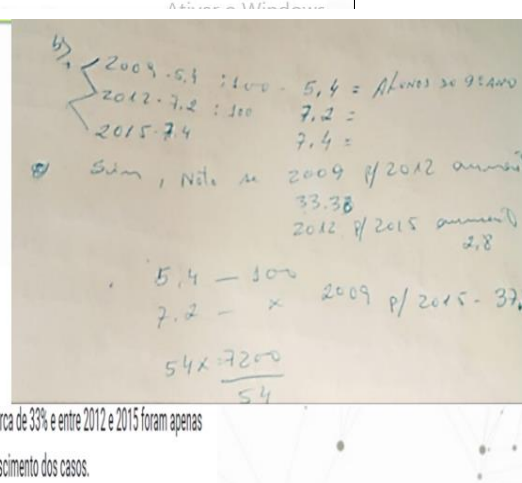 Ativar o Windows
b)
2009 - 5,4 : 100 - 5,4 = Alunos do 9º ano
2012 - 7,2 : 100 7,2 =
2015 - 7,4 7,4 =
Sim, Note se 2009 p/ 2012
33.33
2012 p/ 2015
2,8
5,4 — 100
7.2 — x 2009 p/ 2015 - 37,
54x = 7200
54
rca de 33% e entre 2012 e 2015 foram apenas
scimento dos casos.